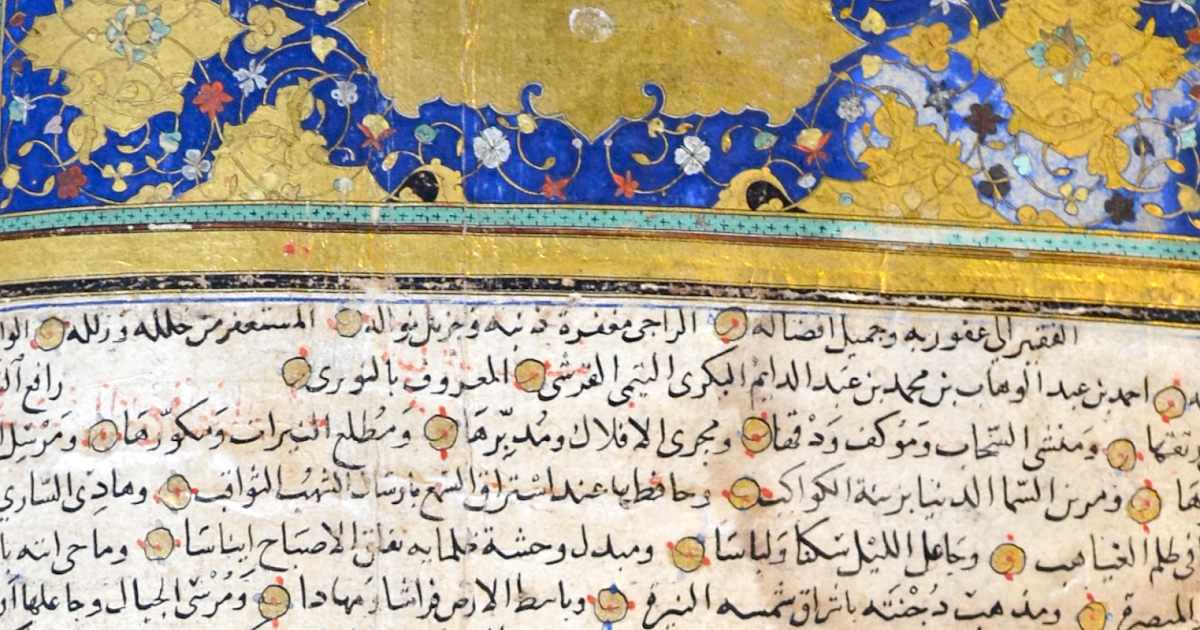 الفقير الى عفو ربه وجميل افضاله الراجى مغفرة ذنبه وجزيل نواله المستغفر من خلله وزلله
احمد بن عبد الوهاب بن محمد بن عبد الدايم البكرى التيمى القرشى المعروف بالنويرى رافع
ومنشى السحاب ومؤكف ودقها ومجرى الافلاك ومدبرها ومطلع النيرات ومكورها ومرسل
ومزين السما الدنيا بزينة الكواكب وحافظها عند استراق السمع بارسال الشهب الثواقب وهادى السارى
فى ظلم الغياهب وجاعل الليل سكنا ولباسا ومبدل وحشة ظلمايه بفلق الاصباح ايناسا وماحى ايته
المبصرة ومذهب دجنته باشراق شمسه النيرة وباسط الارض فراشا ومهادا ومرسى الجبال وجاعلها